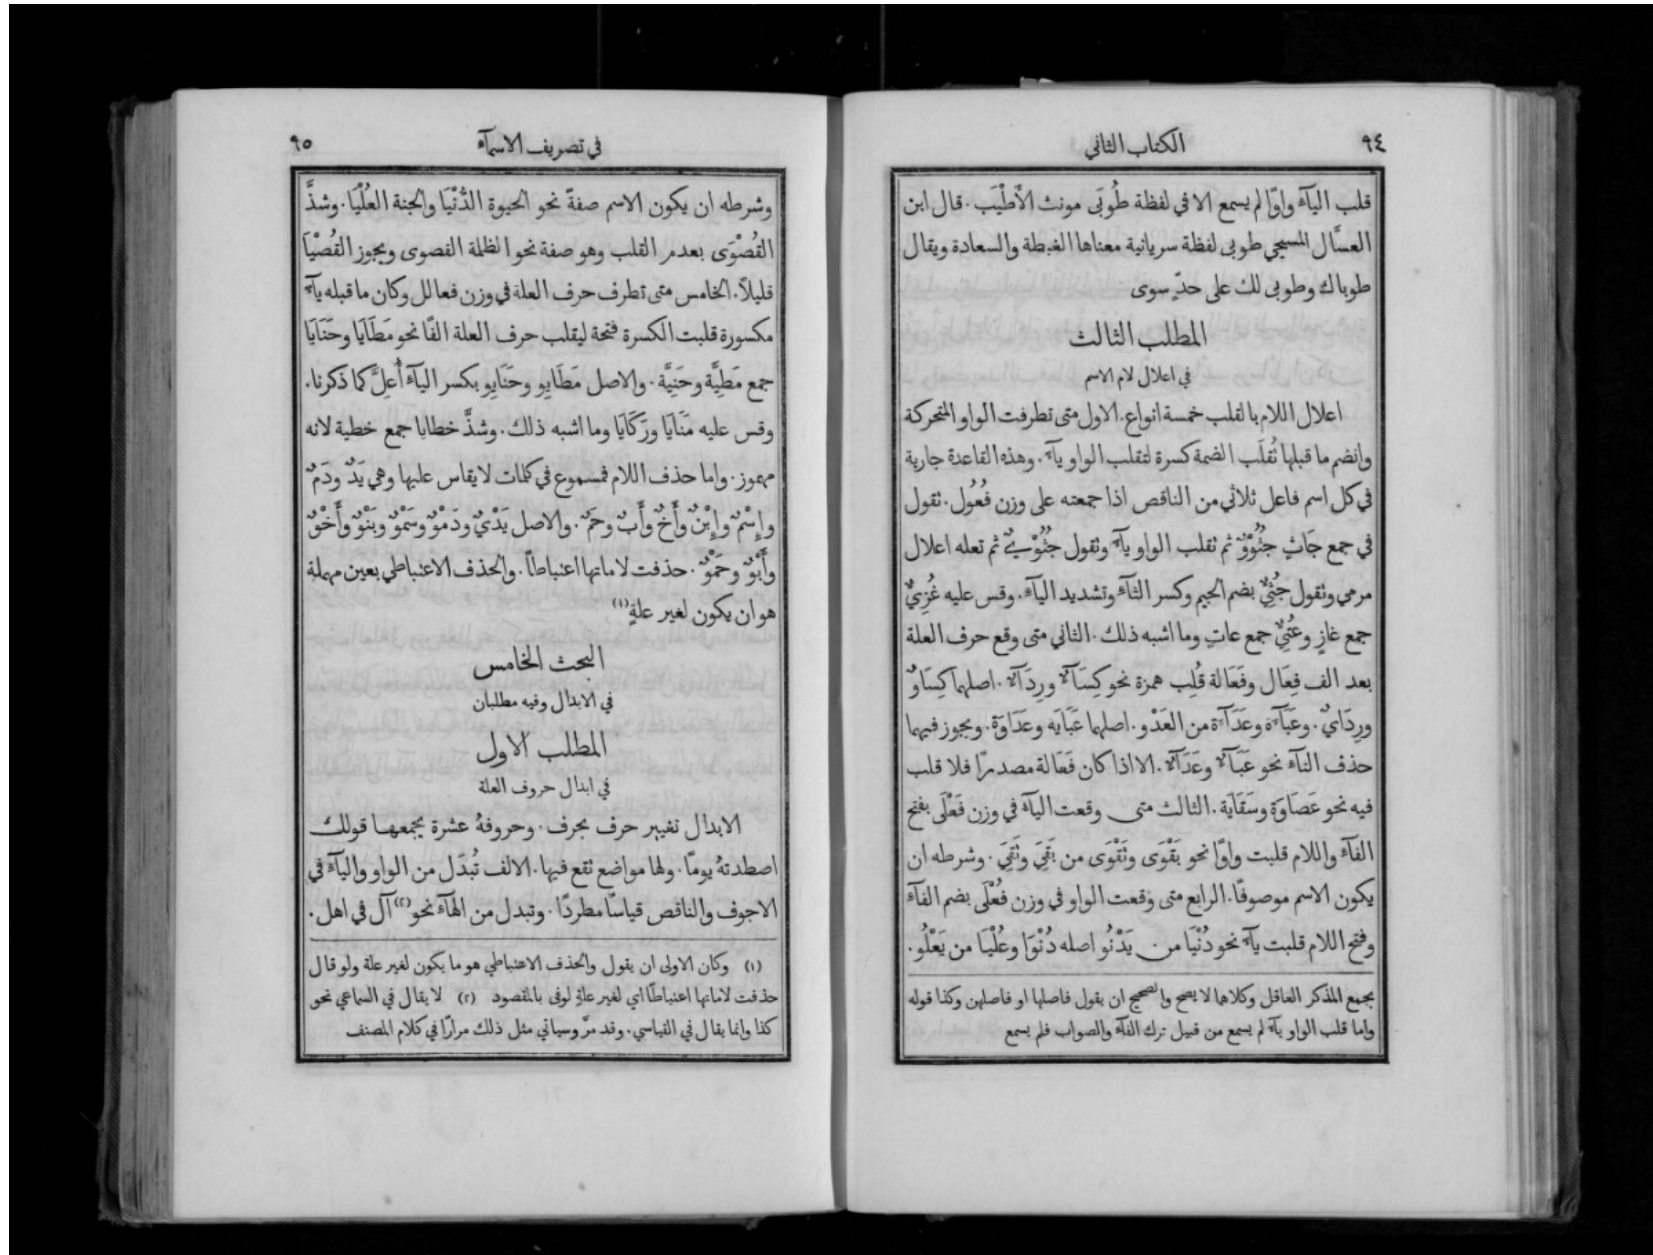 ٩٤
الكتاب الثاني
قلب اليآء واوًا لم يسمع الا في لفظة طُوبَى مونث الأَطْيَب. قال ابن
العسَّال المسيحي طوبى لفظة سريانية معناها الغبطة والسعادة ويقال
طوباك وطوبى لك على حدٍّ سوى
المطلب الثالث
في اعلال لام الاسم
اعلال اللام بالقلب خمسة انواع. الاول متى تطرفت الواو المتحركة
وانضم ما قبلها تُقلَب الضمة كسرة لتقلب الواو يآء. وهذه القاعدة جارية
في كل اسم فاعل ثلاثي من الناقص اذا جمعته على وزن فُعُول. تقول
في جمع جَاثٍ جُثُوْوٌ ثم تقلب الواو يآء وتقول جُثُوْيٌ ثم تعله اعلال
مرمي وتقول جُثِيٌّ بضم الجيم وكسر الثآء وتشديد اليآء. وقس عليه غُزِيٌّ
جمع غازٍ وعُتِيٌّ جمع عاتٍ وما اشبه ذلك. الثاني متى وقع حرف العلة
بعد الف فِعَال وفَعَالة قُلِب همزة نحو كِسَآءٌ ورِدَآءٌ. اصلهما كِسَاوٌ
ورِدَايٌ. وعَبَآءَة وعَدَآءَة من العَدْو. اصلهما عَبَايَه وعَدَاوَة. ويجوز فيهما
حذف التآء نحو عَبَآءٌ وعَدَآءٌ. الا اذا كان فَعَالة مصدرًا فلا قلب
فيه نحو عَصَاوَة وسَقَايَة. الثالث متى وقعت اليآء في وزن فَعْلَى بفتح
الفآء واللام قلبت واوًا نحو بَقْوَى وتَقْوَى من بَقِيَ وتَقِيَ. وشرطه ان
يكون الاسم موصوفًا. الرابع متى وقعت الواو في وزن فُعْلَى بضم الفآء
وفتح اللام قلبت يآء نحو دُنْيَا من يَدْنُو اصله دُنْوَا وعُلْيَا من يَعْلُو.
بجمع المذكر العاقل وكلاهما لا يصح والصحيح ان يقول فاصلها او فاصلهن وكذا قوله
واما قلب الواو يآء لم يسمع من قبيل ترك الفآء والصواب فلم يسمع
في تصريف الاسمآء
٩٥
وشرطه ان يكون الاسم صفةً نحو الحيوة الدُّنْيَا والجنة العُلْيَا. وشذَّ
القُصْوَى بعدم القلب وهو صفة نحو الظلمة القصوى ويجوز القُصْيَا
قليلاً. الخامس متى تطرف حرف العلة في وزن فعالل وكان ما قبله يآء
مكسورة قلبت الكسرة فتحة ليقلب حرف العلة الفًا نحو مَطَايَا وحَنَايَا
جمع مَطِيَّة وحَنِيَّة. والاصل مَطَايِو وحَنَايِو بكسر اليآء أُعِلَّ كما ذكرنا.
وقس عليه مَنَايَا ورَكَايَا وما اشبه ذلك. وشذَّ خطايا جمع خطية لانه
مهموز. واما حذف اللام فمسموع في كلمات لا يقاس عليها وهي يَدٌ ودَمٌ
وإِسْمٌ وإِبْنٌ وأَخٌ وأَبٌ وحَمٌ. والاصل يَدْيٌ ودَمْوٌ وسَمْوٌ وبَنْوٌ وأَخْوٌ
وأَبْوٌ وحَمْوٌ. حذفت لاماتها اعتباطًا. والحذف الاعتباطي بعين مهملة
هو ان يكون لغير علةٍ (١)
البحث الخامس
في الابدال وفيه مطلبان
المطلب الاول
في ابدال حروف العلة
الابدال تغيير حرف بحرف. وحروفهُ عشرة يجمعها قولك
اصطدتهُ يومًا. ولها مواضع تقع فيها. الالف تُبدَل من الواو واليآء في
الاجوف والناقص قياسًا مطردًا. وتبدل من الهآء نحو (٢) آل في اهل.
(١) وكان الاولى ان يقول والحذف الاعتباطي هو ما يكون لغير علة ولو قال
حذفت لاماتها اعتباطًا اي لغير علةٍ لوفى بالمقصود (٢) لا يقال في السماعي نحو
كذا وانما يقال في القياسي. وقد مرَّ وسياتي مثل ذلك مرارًا في كلام المصنف